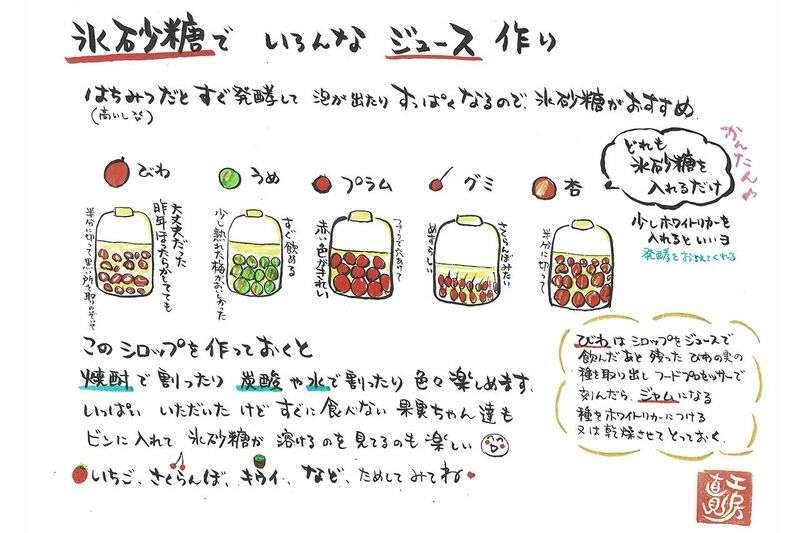 氷砂糖で いろんな ジュース 作り
はちみつだと すぐ発酵して 泡が出たり すっぱくなるので、氷砂糖がおすすめ
(高いし)
かんたん♪
どれも
氷砂糖を
入れるだけ
少しホワイトリカーを
入れるといいヨ
発酵をおさえてくれる
びわ
大丈夫だった
昨年ほったらかしてても
半分に切って黒い所を取りのぞいて
うめ
すぐ飲める
少し熟れた梅がおいしかった
プラム
フォークで穴あけて
赤い色がきれい
グミ
さくらんぼみたい
めずらしい
杏
半分に切って
このシロップを作っておくと
焼酎で割ったり 炭酸や水で割ったり 色々楽しめます。
いっぱい いただいたけど すぐに食べない 果実ちゃん達も
ビンに入れて 氷砂糖が 溶けるのを見てるのも楽しい
いちご、さくらんぼ、キウイ、など、ためしてみてね
びわはシロップをジュースで
飲んだあと 残った びわの実の
種を取り出し フードプロセッサーで
刻んだら、ジャムになる
種をホワイトリカーにつける
又は乾燥させてとっておく。
工房
直見